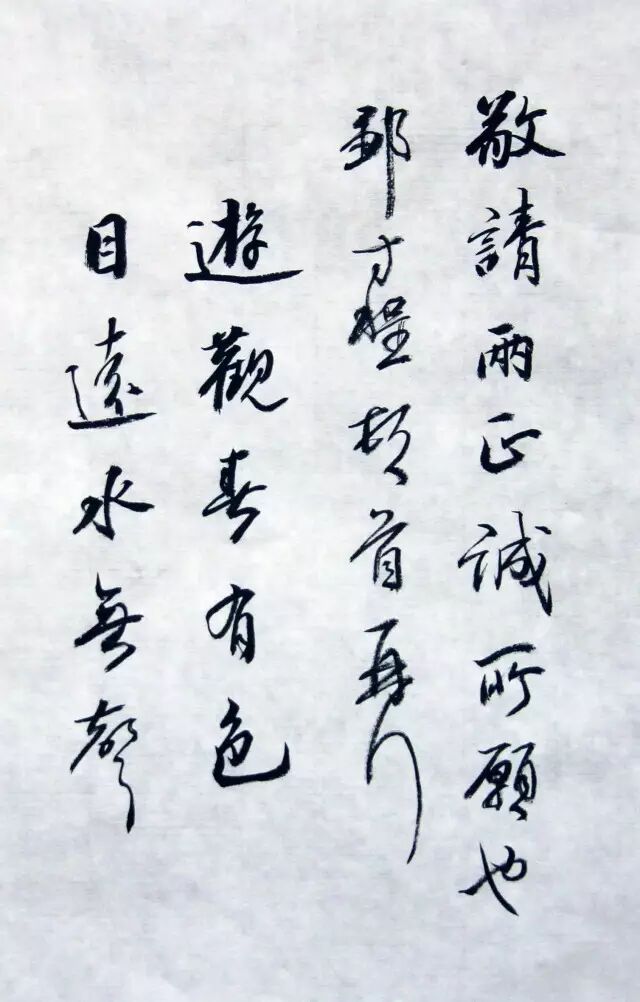 敬請兩正誠所願也
程頓首再
遊觀春有色
目遠水無聲